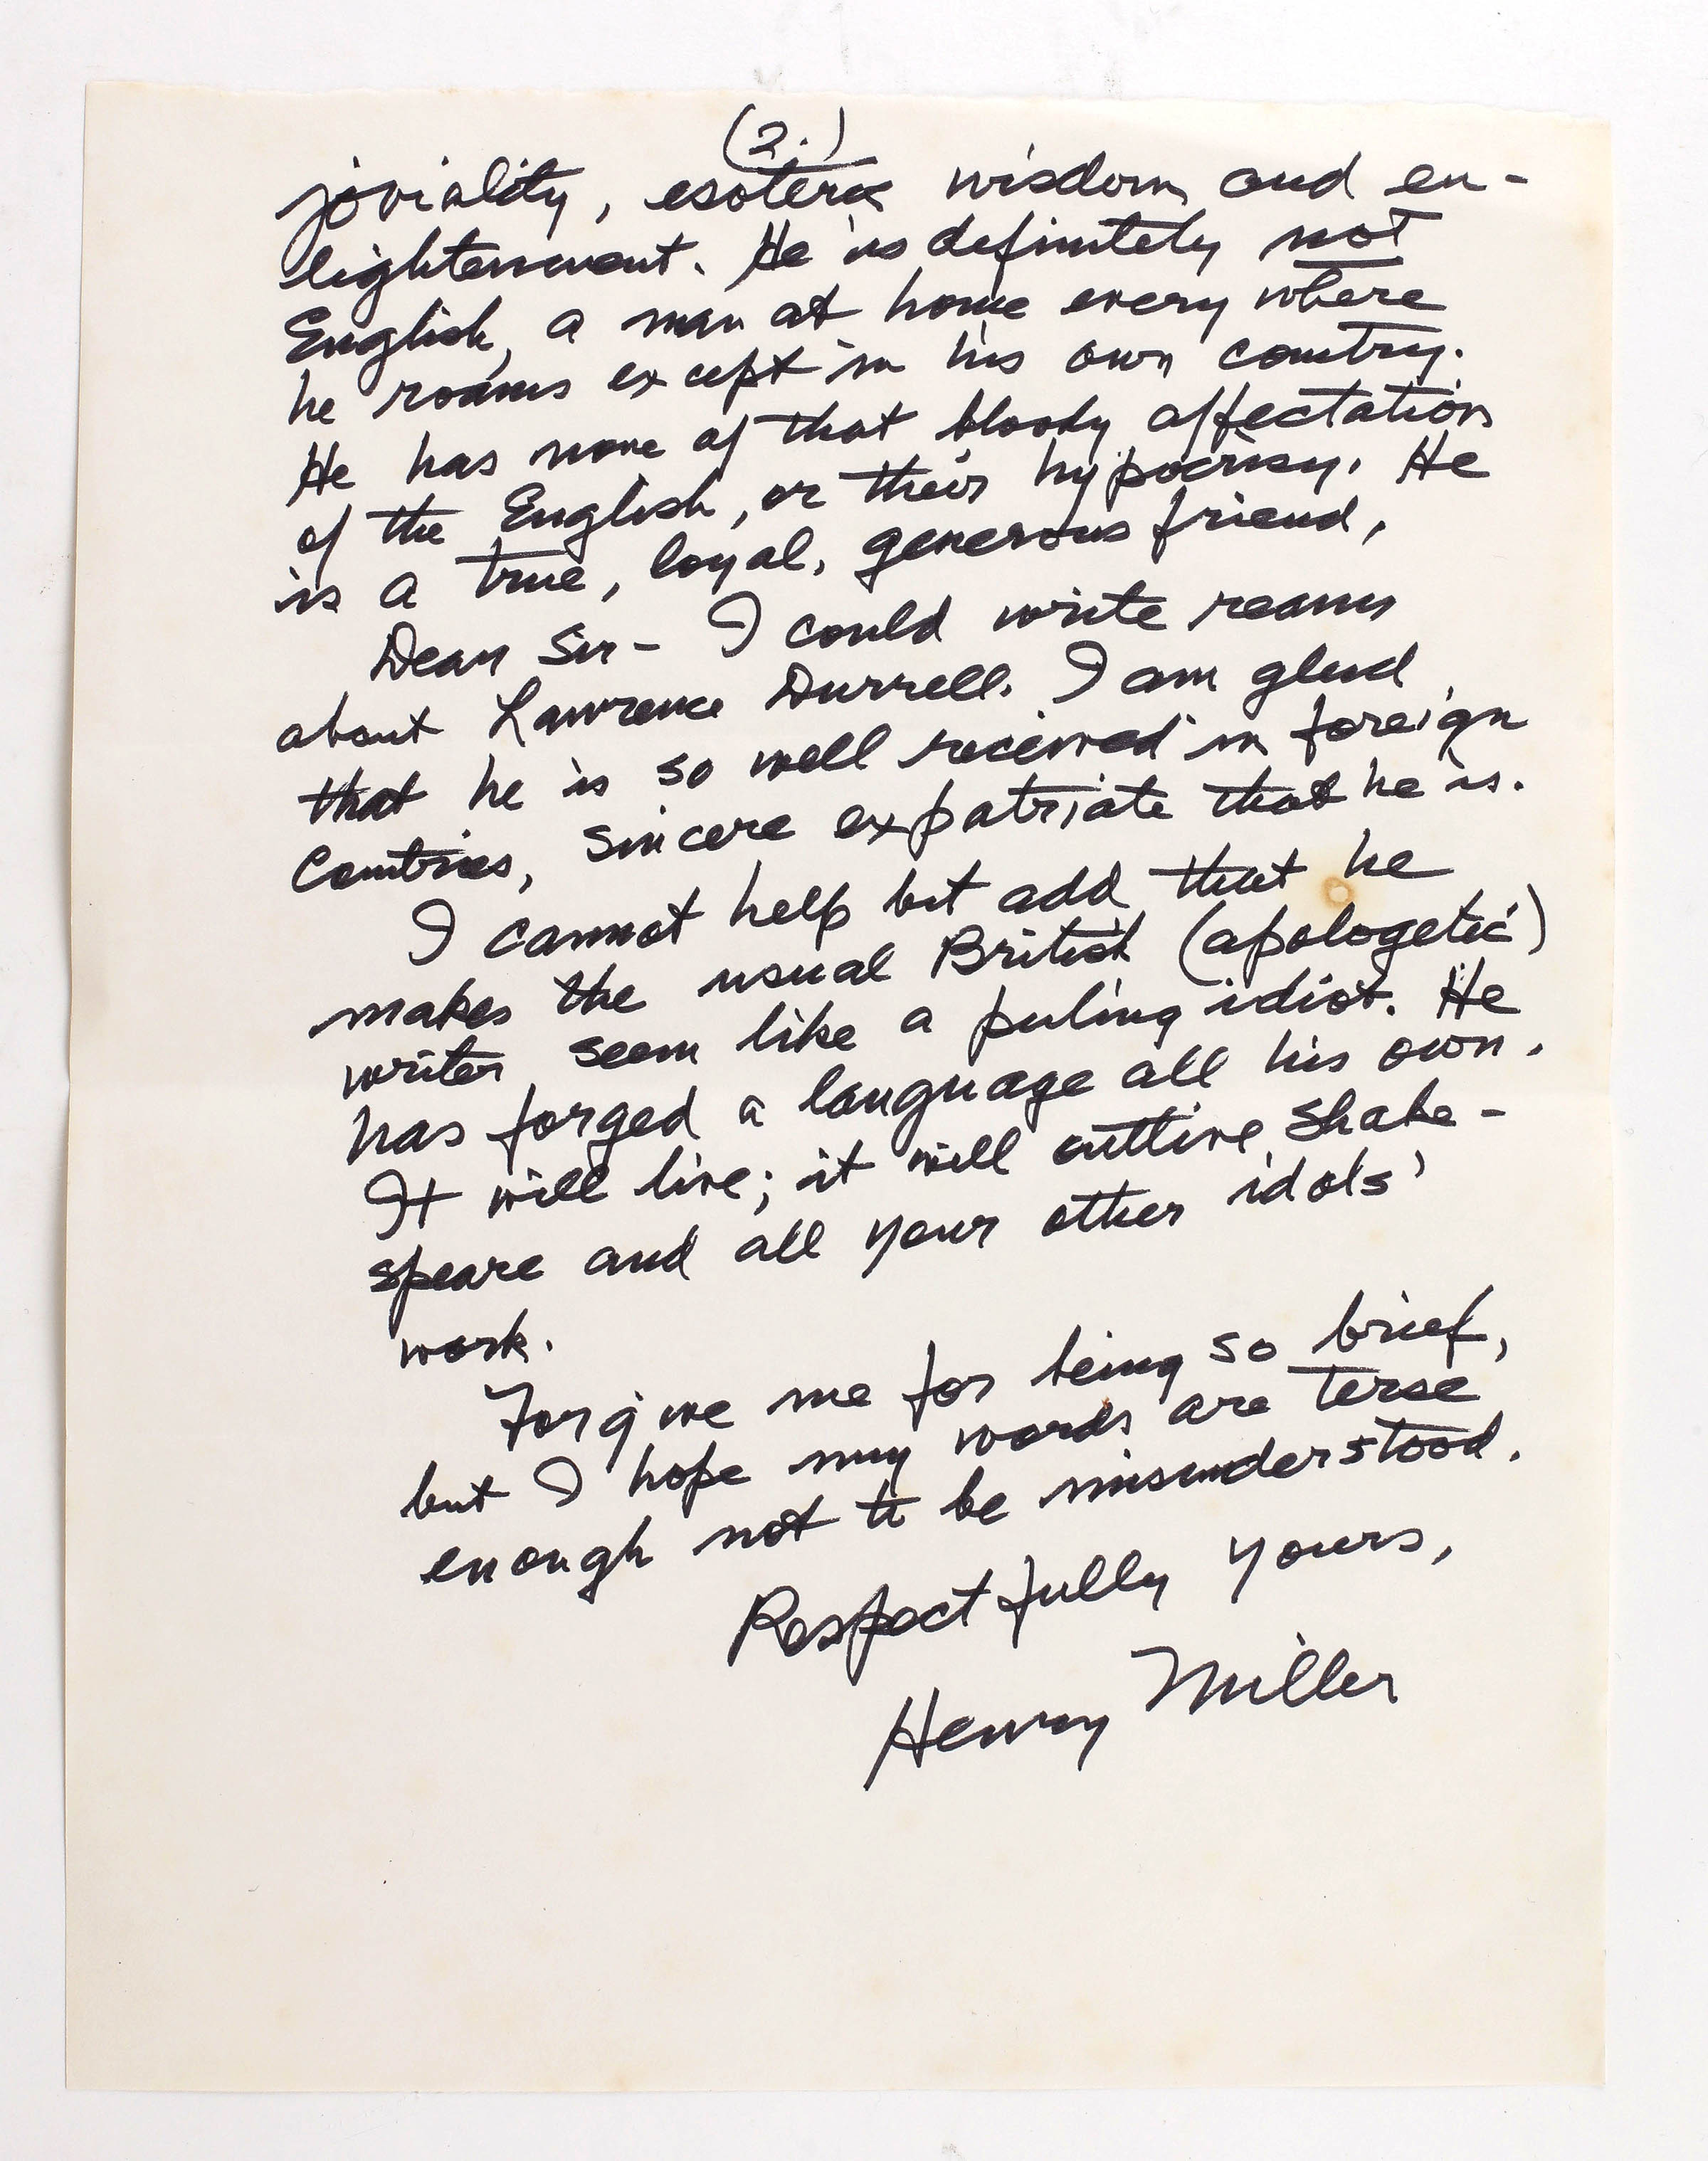 (2.)
joviality, esoteric wisdom and en-
lightenment. He is definitely not
English, a man at home every where
he roams except in his own country.
He has none of that bloody affectation
of the English, or their hypocrisy. He
is a true, loyal, generous friend,
Dear Sir - I could write reams
about Lawrence Durrell. I am glad
that he is so well received in foreign
Countries, sincere expatriate that he is.
I cannot help but add that he
makes the usual British (apologetic)
writer seem like a puling idiot. He
has forged a language all his own.
It will live; it will outlive Shake-
speare and all your other idols'
work.
Forgive me for being so brief,
but I hope my words are terse
enough not to be misunderstood.
Respectfully yours,
Henry Miller